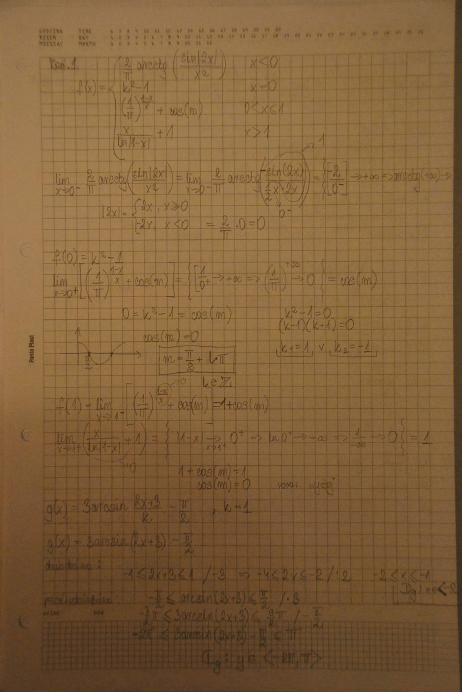 GODZINA TIME
MIESIĄC MONTH
Zad. 1
f(x) = { 2/π arcctg(sin|2x|/x²) x<0
k²-1 x=0
(1/π)^((1-x)/x) + cos(m) 0<x≤1
x/ln|1-x| + 1 x>1
lim x→0⁻ 2/π arcctg(sin|2x|/x²) = lim x→0⁻ 2/π arcctg(-sin(2x)/(½x·2x)) = {[-2/0⁻] → +∞ => arcctg(+∞) →
|2x| = { 2x, x≥0
{-2x, x<0 = 2/π · 0 = 0
f(0) = k²-1
lim x→0⁺ [(1/π)^((1-x)/x) + cos(m)] = {[1/0⁺] → +∞ => (1/π)^(+∞) → 0} = cos(m)
0 = k²-1 = cos(m) k²-1=0
(k-1)(k+1)=0
cos(m)=0
m = π/2 + kπ k₁=1 v k₂=-1
k∈Z
f(1) = lim x→1⁻ [(1/π)^((1-x)/x) + cos(m)] = 1+cos(m)
lim x→1⁺ (x/ln|1-x| + 1) = { |1-x| → 0⁺ => ln 0⁺ → -∞ => 1/-∞ → 0 } = 1
1+cos(m)=1
cos(m)=0
g(x) = 3arcsin (2x+3)/k - π/2 , k=1
g(x) = 3arcsin(2x+3) - π/2
dziedzina:
-1≤2x+3≤1 /-3 => -4≤2x≤-2 /:2 -2≤x≤-1
-π/2 ≤ arcsin(2x+3) ≤ π/2 /·3
-3/2π ≤ 3arcsin(2x+3) ≤ 3/2π /-π/2
-2π ≤ 3arcsin(2x+3) - π/2 ≤ π
y∈<-2π, π>